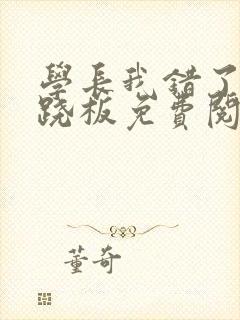 學長我錯了
跷板免費閱
董奇